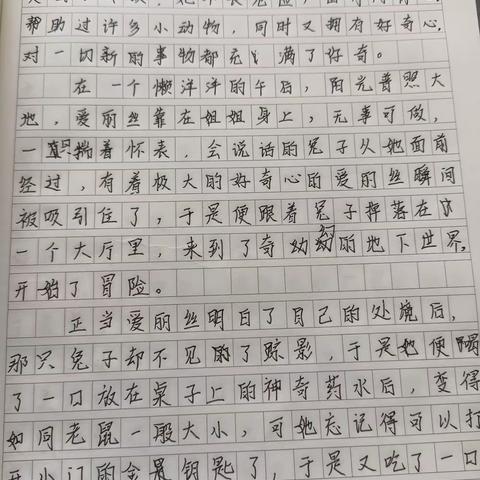 帮助过许多小动物，同时又拥有好奇心，
对一切新的事物都充满了好奇。
在一个懒洋洋的午后，阳光普照大
地，爱丽丝靠在姐姐身上，无事可做，
一只揣着怀表，会说话的兔子从她面前
经过，有着极大的好奇心的爱丽丝瞬间
被吸引住了，于是便跟着兔子掉落在了
一个大厅里，来到了奇幻的地下世界，
开始了冒险。
正当爱丽丝明白了自己的处境后，
那只兔子却不见了踪影，于是她便喝
了一口放在桌子上的神奇药水后，变得
如同老鼠一般大小，可她忘记得可以打
开小门的金钥匙了，于是又吃了一口